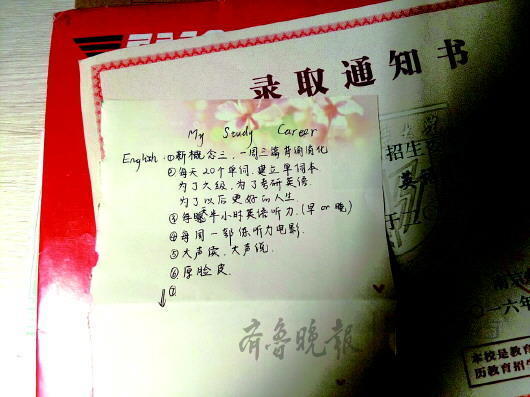 录取通知书
My Study Career
English: ①新概念三,一周三篇背诵消化
②每天20个单词,建立单词本
为了六级,为了考研英语.
为了以后更好的人生
③每晚半小时英语听力.(早 or 晚)
④每周一部练听力电影.
⑤大声读,大声说.
⑥厚脸皮.
⑦
招生
一六年
本校是教育
历教育招生
齐鲁晚报